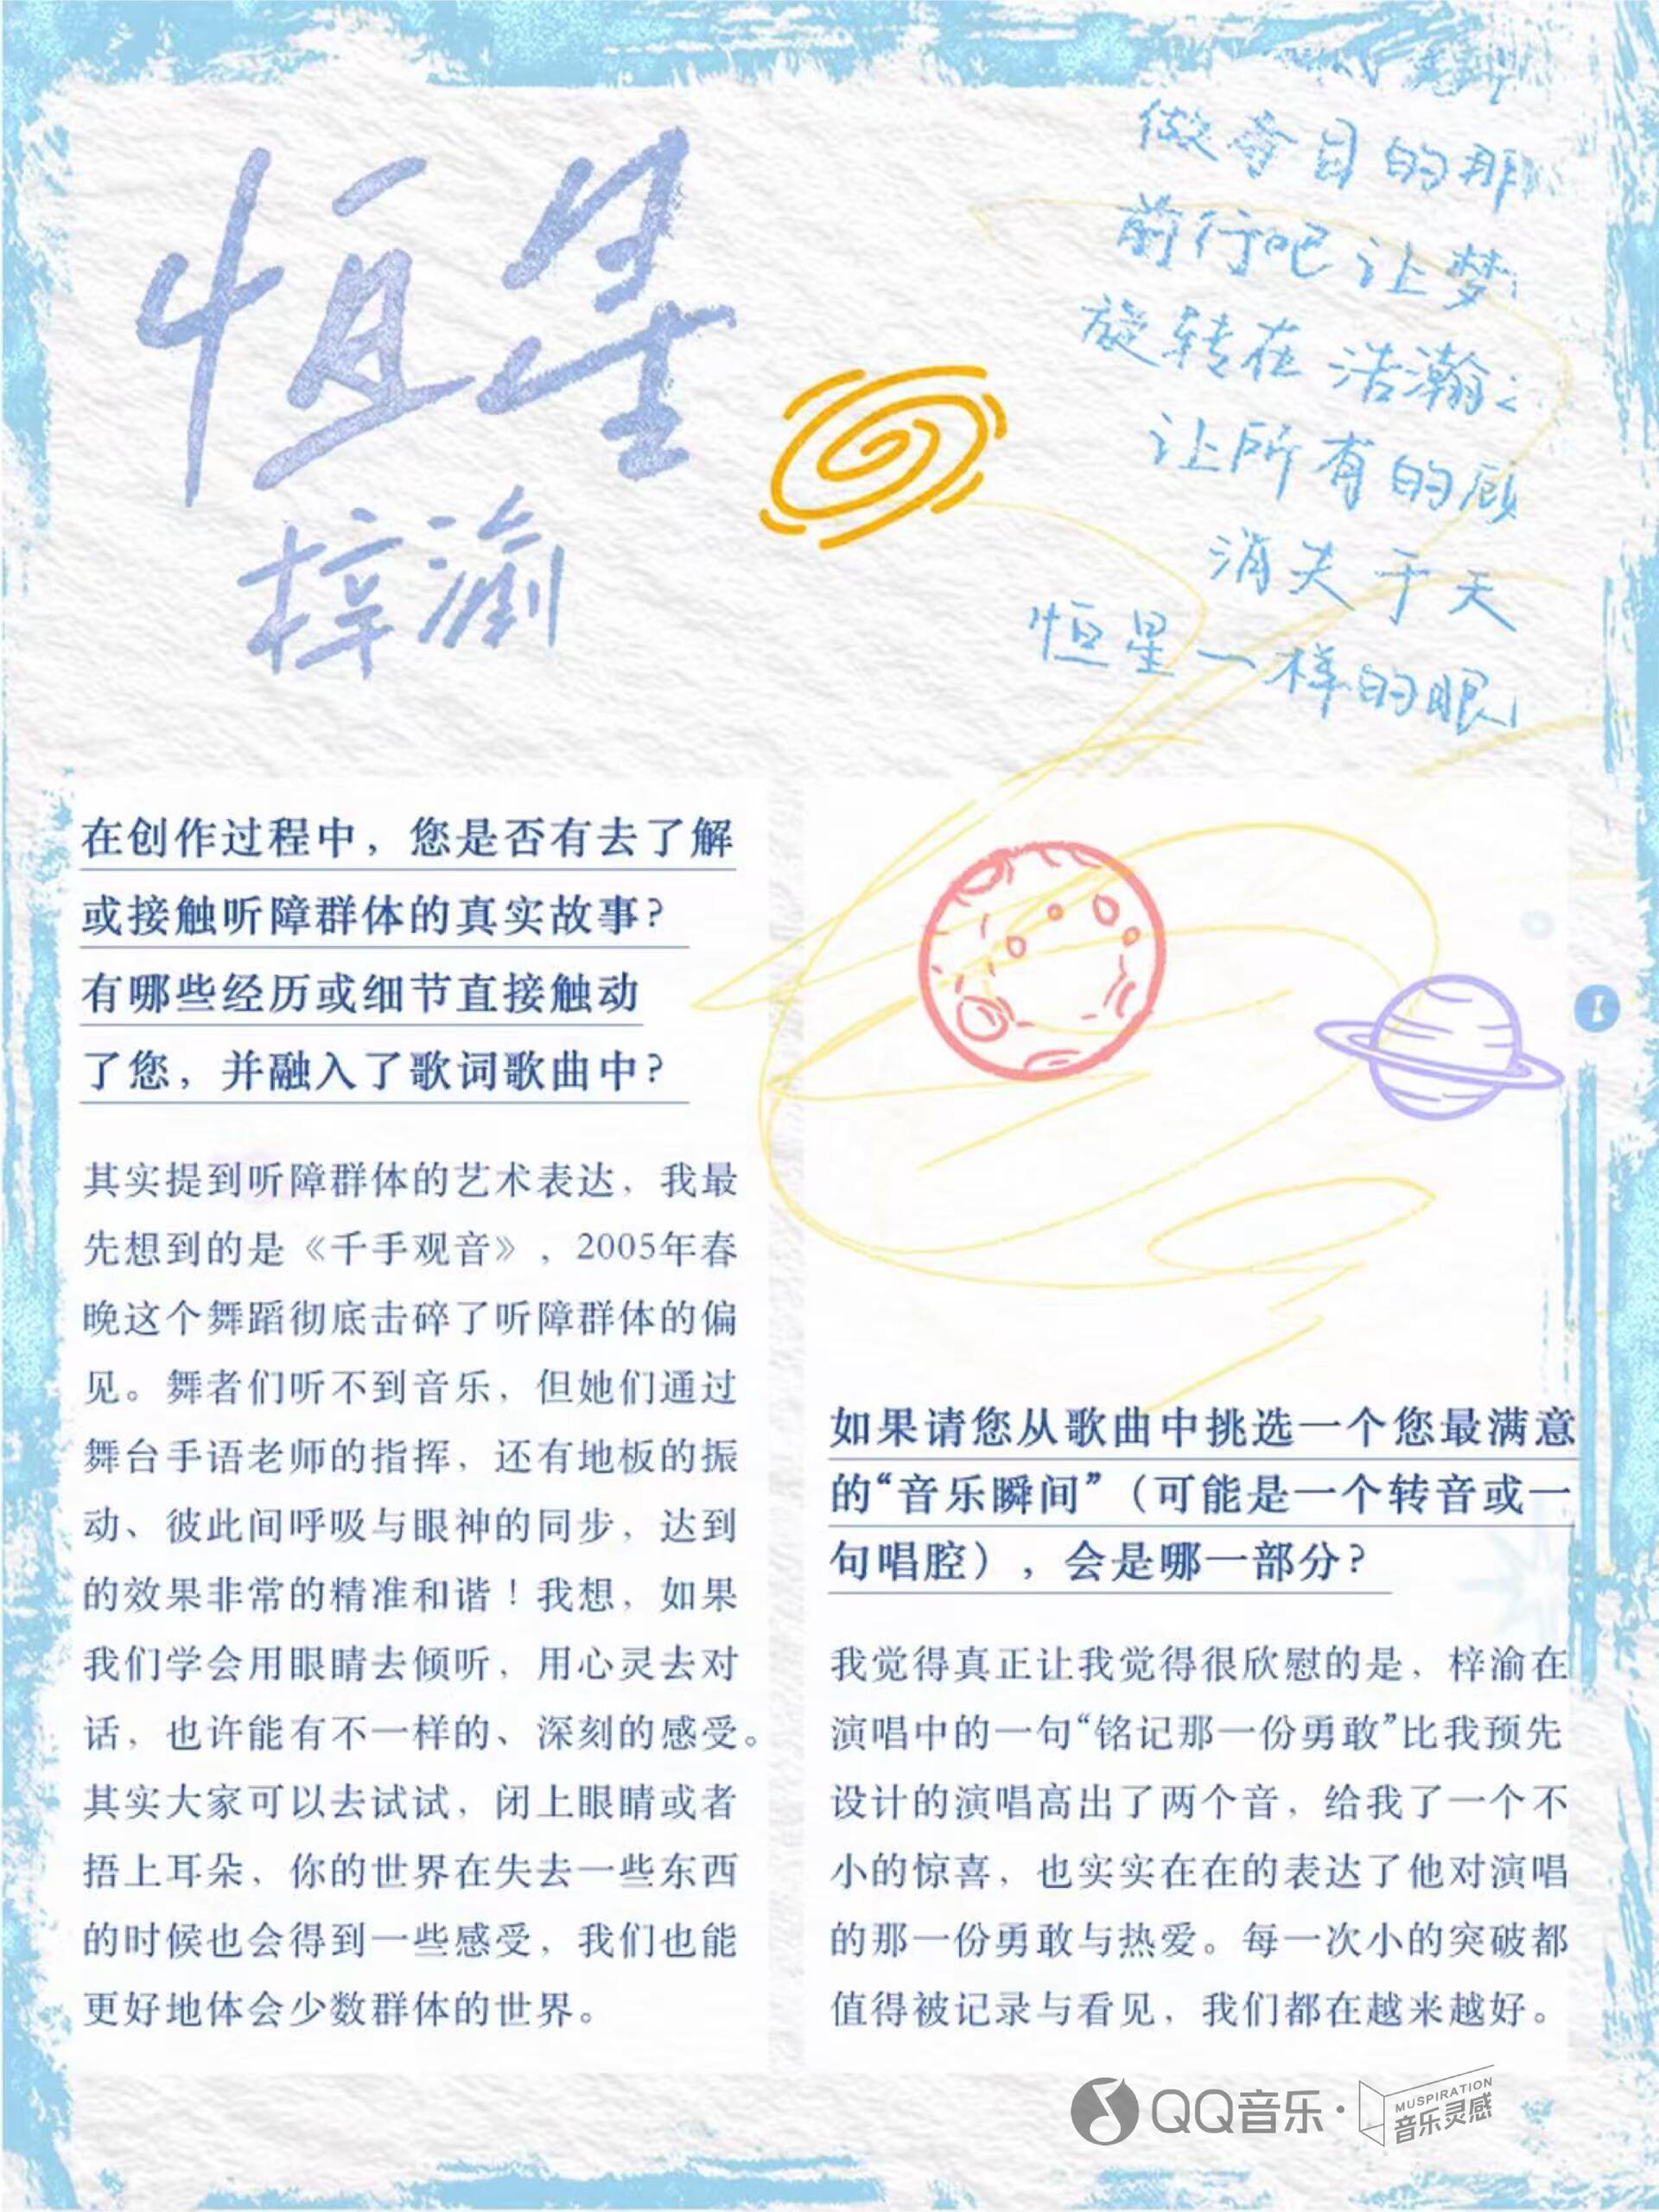 恒星
梓渝
做夺目的那
前行吧 让梦
旋转在 浩瀚
让所有的顾
消失于天
恒星一样的眼
在创作过程中，您是否有去了解
或接触听障群体的真实故事？
有哪些经历或细节直接触动
了您，并融入了歌词歌曲中？
其实提到听障群体的艺术表达，我最
先想到的是《千手观音》，2005年春
晚这个舞蹈彻底击碎了听障群体的偏
见。舞者们听不到音乐，但她们通过
舞台手语老师的指挥，还有地板的振
动、彼此间呼吸与眼神的同步，达到
的效果非常的精准和谐！我想，如果
我们学会用眼睛去倾听，用心灵去对
话，也许能有不一样的、深刻的感受。
其实大家可以去试试，闭上眼睛或者
捂上耳朵，你的世界在失去一些东西
的时候也会得到一些感受，我们也能
更好地体会少数群体的世界。
如果请您从歌曲中挑选一个您最满意
的“音乐瞬间”（可能是一个转音或一
句唱腔），会是哪一部分？
我觉得真正让我觉得很欣慰的是，梓渝在
演唱中的一句“铭记那一份勇敢”比我预先
设计的演唱高出了两个音，给我了一个不
小的惊喜，也实实在在的表达了他对演唱
的那一份勇敢与热爱。每一次小的突破都
值得被记录与看见，我们都在越来越好。
QQ音乐·
MUSPIRATION
音乐灵感